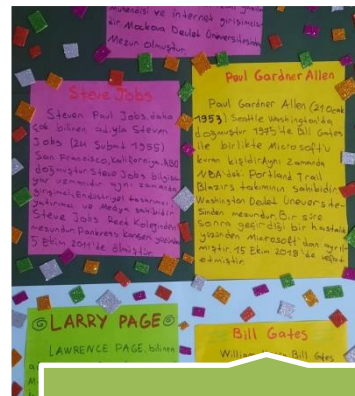 mühendisi ve internet girişimcisi-
dir Moskova Devlet Üniversitesinden
Mezun olmuştur.
Steve Jobs
Steven Paul Jobs, daha
çok bilinen adıyla Steven
Jobs (24 Şubat 1955)
San Francisco, Kaliforniya, ABD
doğmuştur Steve Jobs bilgisa-
yar uzmanıdır aynı zamanda
girişimci, Endüstriyel tasarımcı
yatırımcı ve Medya sahibidir.
Steve Jobs Reed Kolejinden
mezundur. Pankreas kanseri yüzünden
5 Ekim 2011'de ölmüştür.
Paul Gardner Allen
Paul Gardner Allen (21 Ocak
1953) Seattle Washington'da
doğmuştur 1975'de Bill Gates
ile birlikte Microsoft'u
kuran kişidir. Aynı Zamanda
NBA'daki Portland Trail
Blazers takımının sahibidir.
Washington Devlet Üniversite-
sinden mezundur. Bir süre
sonra geçirdiği bir hastalık
yüzünden Microsoft'dan ayrıl-
mıştır. 15 Ekim 2018'de vefat
etmiştir.
LARRY PAGE
LAWRENCE PAGE, bilinen
Bill Gates
William Bill Gates